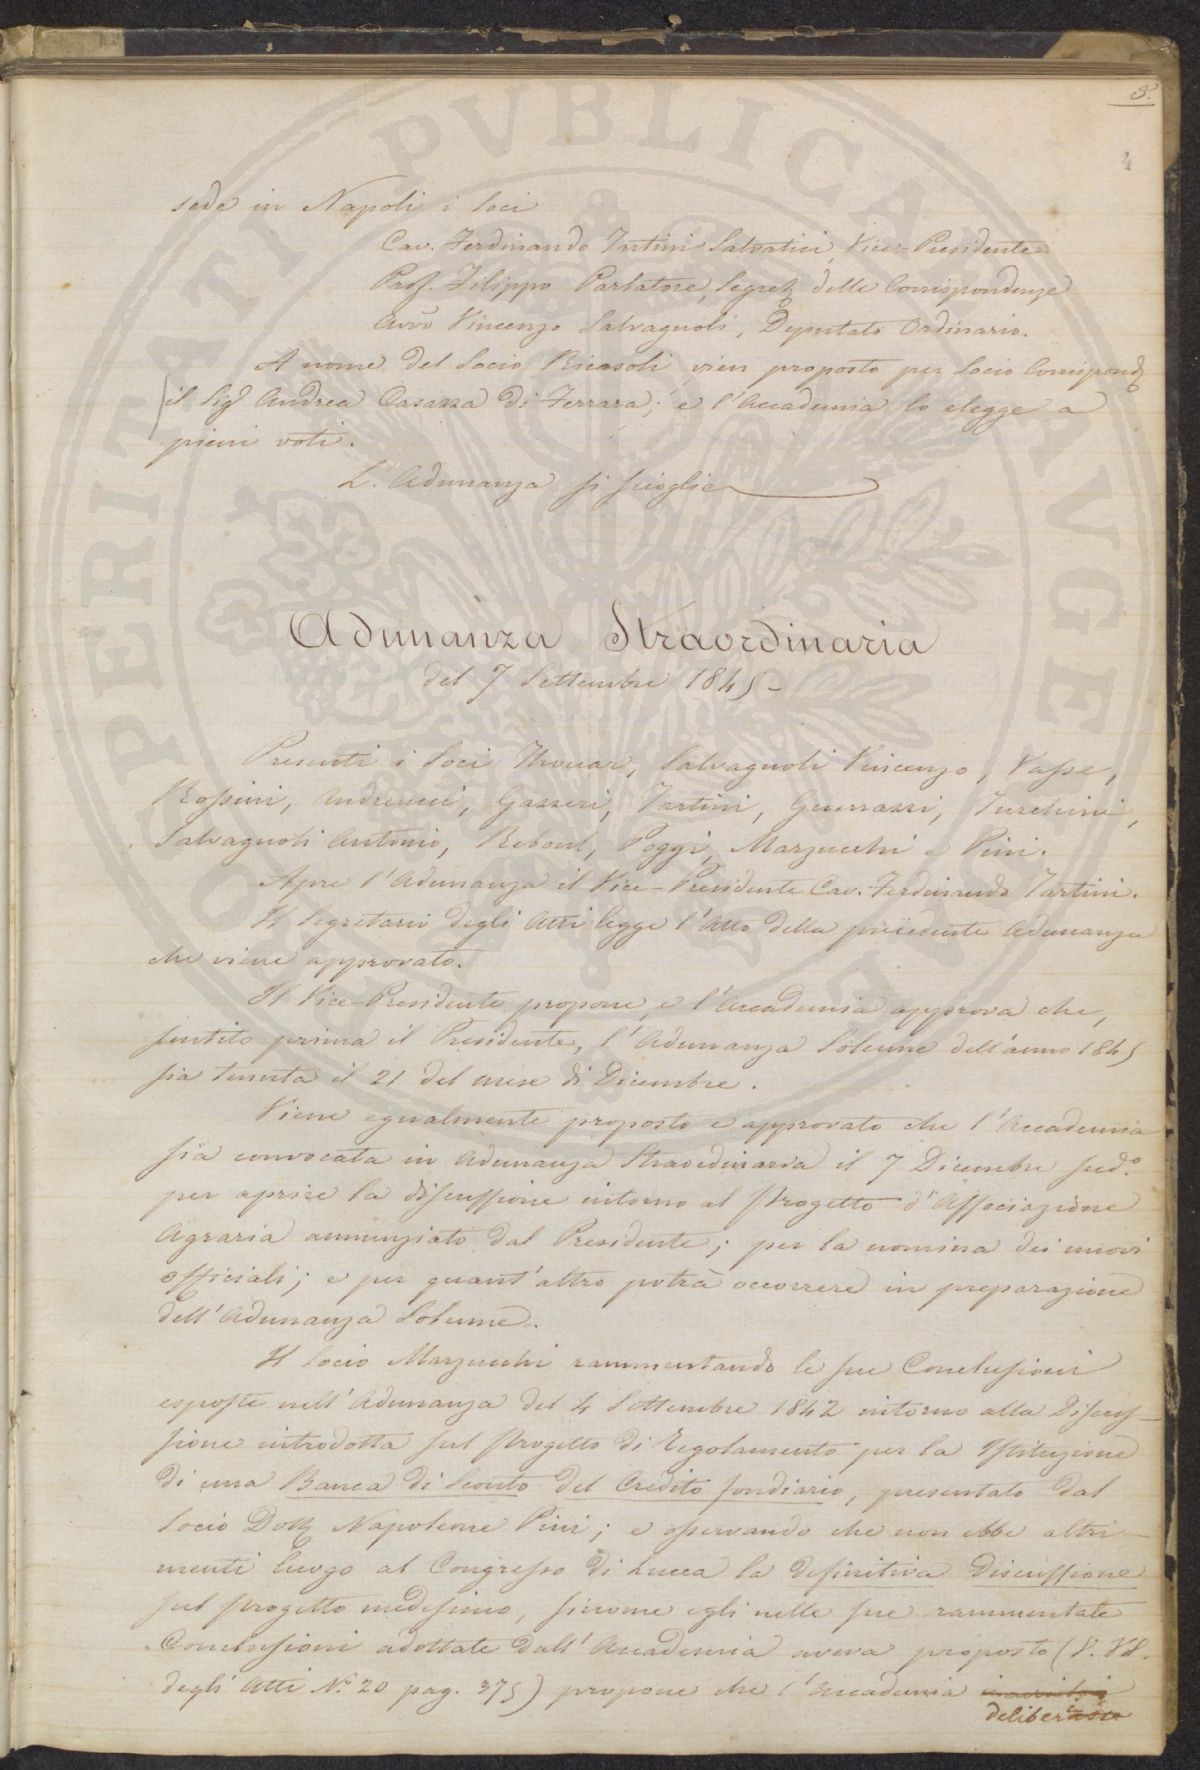 5.
4
sede in Napoli i Soci
Cav. Ferdinando Tartini Salvatici, Vice-Presidente
Prof. Filippo Parlatore, Segret delle Corrispondenze
Avvo Vincenzo Salvagnoli, Deputato Ordinario.
A nome del Socio Ricasoli vien proposto per Socio Corrispond
il Sig Andrea Casazza di Ferrara; e l'Accademia lo elegge a
pieni voti.
L'Adunanza si scioglie
Adunanza Straordinaria
del 7 Settembre 1845 -
Presenti i Soci Thouar, Salvagnoli Vincenzo, Vasse,
Rossini, Andreucci, Gazzeri, Tartini, Guerrazzi, Turchini,
Salvagnoli Antonio, Reboul, Poggi, Marzucchi e Pini.
Apre l'Adunanza il Vice-Presidente Cav. Ferdinando Tartini.
Il Segretario degli Atti legge l'Atto della precedente Adunanza
che viene approvato.
Il Vice-Presidente propone, e l'Accademia approva che,
sentito prima il Presidente, l'Adunanza Solenne dell'anno 1845
sia tenuta il 21 del mese di Dicembre.
Viene egualmente proposto e approvato che l'Accademia
sia convocata in Adunanza Straordinaria il 7 Dicembre sud.o
per aprire la discussione intorno al Progetto d'Associazione
Agraria annunziato dal Presidente; per la nomina dei nuovi
officiali; e per quant'altro potrà occorrere in preparazione
dell'Adunanza Solenne.
Il Socio Marzucchi rammentando le sue Conclusioni
esposte nell'Adunanza del 4 Settembre 1842 intorno alla Discus-
sione introdotta sul Progetto di Regolamento per la Istituzione
di una Banca di Sconto del Credito fondiario, presentato dal
Socio Dott Napoleone Pini; e osservando che non ebbe altri-
menti luogo al Congresso di Lucca la definitiva Discussione
sul progetto medesimo, siccome egli nelle sue rammentate
Conclusioni adottate dall'Accademia aveva proposto (V. Vol.
degli Atti N.o 20 pag. 375) propone che l'Accademia
deliber
OPERITATI PVBLICAE AVGE